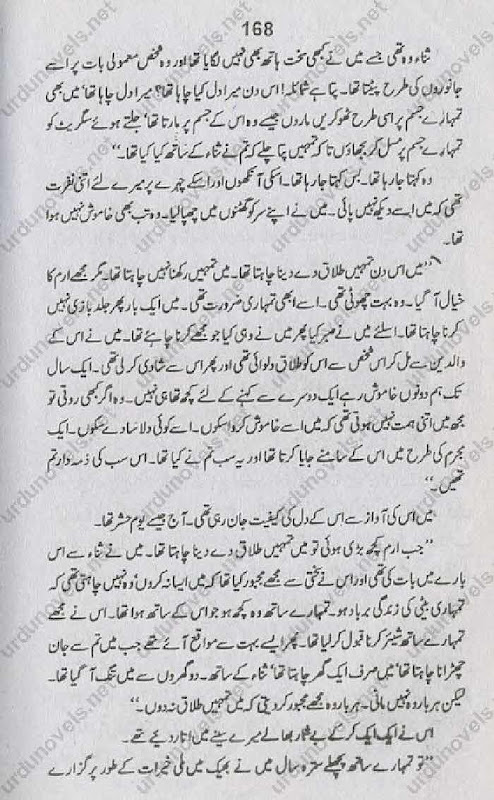 168
ثناء وہ تھی جسے میں نے کبھی سخت ہاتھ بھی نہیں لگایا تھا اور وہ شخص معمولی بات پر اسے
جانوروں کی طرح پیٹتا تھا۔ پتا ہے شمائلہ! اس دن میرا دل کیا چاہا تھا؟ میرا دل چاہا تھا' میں بھی
تمہارے جسم پر اسی طرح ٹھوکریں ماروں جیسے وہ اس کے جسم پر مارتا تھا' جلتے ہوئے سگریٹ کو
تمہارے جسم پر مسل کر بجھاؤں تا کہ تمہیں پتا چلے کہ تم نے ثناء کے ساتھ کیا کیا تھا۔''
وہ کہتا جا رہا تھا۔ بس کہتا جا رہا تھا۔ اسکی آنکھوں اور اسکے چہرے پر میرے لئے اتنی نفرت
تھی کہ میں اسے دیکھ نہیں پائی۔ میں نے اپنے سر کو گھٹنوں میں چھپا لیا۔ وہ تب بھی خاموش نہیں ہوا
تھا۔
''میں اس دن تمہیں طلاق دے دینا چاہتا تھا۔ میں تمہیں رکھنا نہیں چاہتا تھا۔ مگر مجھے ارم کا
خیال آ گیا۔ وہ بہت چھوٹی تھی۔ اسے ابھی تمہاری ضرورت تھی۔ میں ایک بار پھر جلد بازی نہیں
کرنا چاہتا تھا۔ اسلئے میں نے صبر کیا پھر میں نے وہی کیا جو مجھے کرنا چاہئے تھا۔ میں نے اس کے
والدین سے مل کر اس شخص سے اس کو طلاق دلوائی تھی اور پھر اس سے شادی کر لی تھی۔ ایک سال
تک ہم دونوں خاموش رہے ایک دوسرے سے کہنے کے لئے کچھ تھا ہی نہیں۔ وہ اگر کبھی روتی تو
مجھ میں اتنی ہمت نہیں ہوتی تھی کہ میں اسے خاموش کروا سکوں۔ اسے کوئی دلاسا دے سکوں۔ ایک
مجرم کی طرح میں اس کے سامنے جایا کرتا تھا اور یہ سب تم نے کیا تھا۔ اس سب کی ذمہ دار تم
تھیں۔''
میں اس کی آواز سے اس کے دل کی کیفیت جان رہی تھی۔ آج جیسے یوم حشر تھا۔
''جب ارم کچھ بڑی ہوئی تو میں تمہیں طلاق دے دینا چاہتا تھا۔ میں نے ثناء سے اس
بارے میں بات کی تھی اور اس نے سختی سے مجھے مجبور کیا تھا کہ میں ایسا نہ کروں' وہ نہیں چاہتی تھی کہ
تمہاری بیٹی کی زندگی برباد ہو۔ تمہارے ساتھ وہ کچھ ہو جو اس کے ساتھ ہوا تھا۔ اس نے مجھے
تمہارے ساتھ شیئر کرنا قبول کر لیا تھا۔ پھر ایسے بہت سے مواقع آئے تھے جب میں تم سے جان
چھڑانا چاہتا تھا' میں صرف ایک گھر چاہتا تھا' ثناء کے ساتھ۔ دو گھروں سے میں تنگ آ گیا تھا۔
لیکن ہر بار وہ نہیں مانی۔ ہر بار وہ مجھے مجبور کر دیتی کہ میں تمہیں طلاق نہ دوں۔''
اس نے ایک ایک کر کے بے شمار بھالے میرے سینے میں اتار دیئے تھے۔
''تو تمہارے ساتھ پچھلے سترہ سال میں نے بھیک میں ملی خیرات کے طور پر گزارے
urdunovels.net